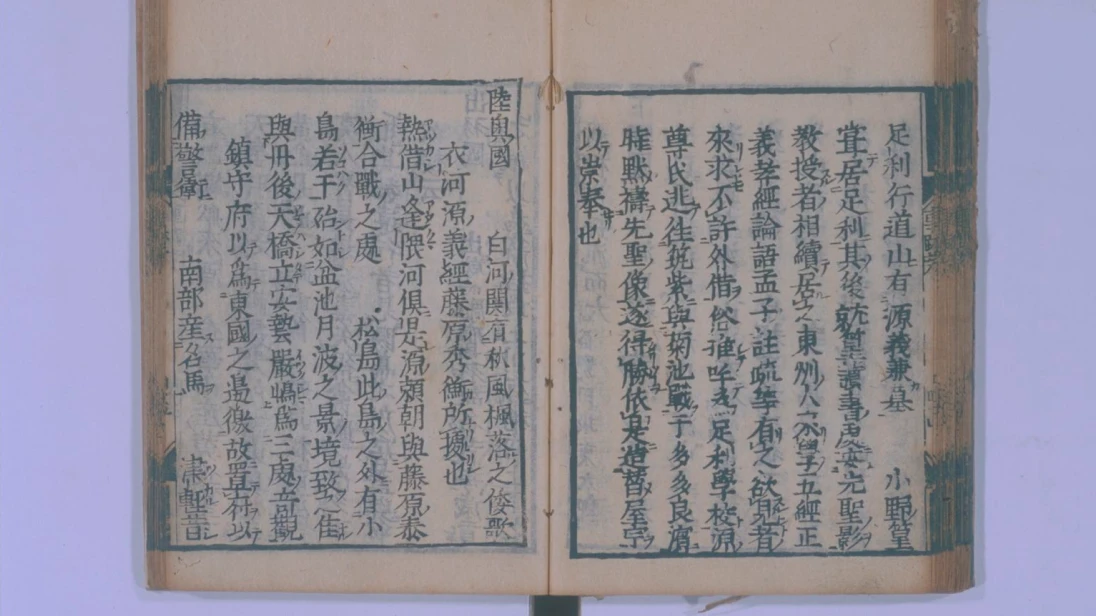 足利行道山有源義兼墓　小野篁
宜居足利其後就聖讀書處安先聖影
教授者相續居之東州人欲學子五經正
義孝經論語孟子註疏等有之欲見者
來求不許外借俗誰呼爲足利學校源
尊氏逃往筑紫與菊池戰于多多良濱
時默禱先聖像遂得勝依是造替屋宗
以崇奉也
陸奥國　白河關有秋風楓落之倭歌
衣河源義經藤原秀衡所據也
熱借山逢隈河俱是源賴朝與藤原泰
衡合戰之處　松島此島之外有小
島若干殆如盆池月波之景境致之佳
與丹後天橋立安藝嚴嶋爲三處奇觀
鎮守府以爲東國之邊徼故置府以
備警衛　南部産名馬　津輕昔